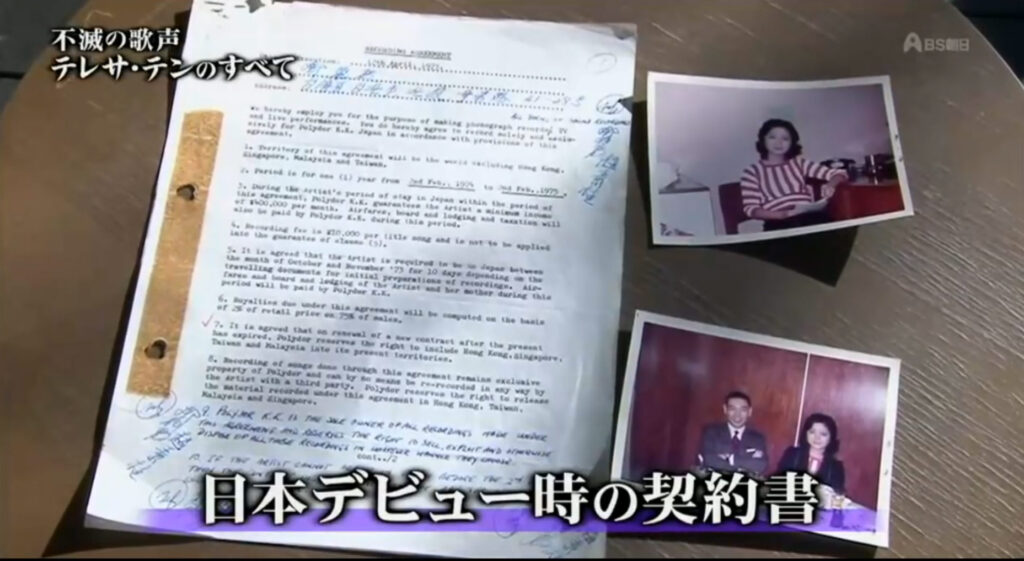 不滅の歌声
テレサ・テンのすべて
BS朝日
RECORDING AGREEMENT
We hereby employ you for the purpose of making phonograph records, TV
and live performances. You do hereby agree to record solely and exclu-
sively for Polydor K.K. Japan in accordance with provisions of this
agreement.
1. Territory of this agreement will be the world excluding Hong Kong,
Singapore, Malaysia and Taiwan.
2. Period is for one (1) year from 2nd Feb., 1974 to 2nd Feb., 1975.
3. During the Artist's period of stay in Japan within the period of
this agreement, Polydor K.K. guarantees the Artist a minimum income
of ¥400,000 per month. Airfares, board and lodging and taxation will
also be paid by Polydor K.K. during this period.
4. Recording fee is ¥10,000 per title song and is not to be applied
into the guarantee of clause (3).
5. It is agreed that the Artist is required to be in Japan between
the month of October and November '73 for 10 days depending on the
travelling documents for initial preparations of recordings. Air-
fares and board and lodging of the Artist and her mother during this
period will be paid by Polydor K.K.
6. Royalties due under this agreement will be computed on the basis
of 2% of retail price on 75% of sales.
7. It is agreed that on renewal of a new contract after the present
has expired, Polydor reserves the right to include Hong Kong, Singapore,
Taiwan and Malaysia into its present territories.
8. Recording of songs done through this agreement remains exclusive
property of Polydor and can by no means be re-recorded in any way by
the Artist with a third party. Polydor reserves the right to release
the material recorded under this agreement in Hong Kong, Taiwan,
Malaysia and Singapore.
9. POLYDOR K.K. IS THE SOLE OWNER OF ALL RECORDINGS MADE UNDER
THIS AGREEMENT AND RESERVES THE RIGHT TO SELL, EXPLOIT AND OTHERWISE
DISPOSE OF ALL THESE RECORDINGS IN WHATEVER MANNER THEY CHOOSE.
cont../2
10. IF THE ARTIST CANNOT
日本デビュー時の契約書